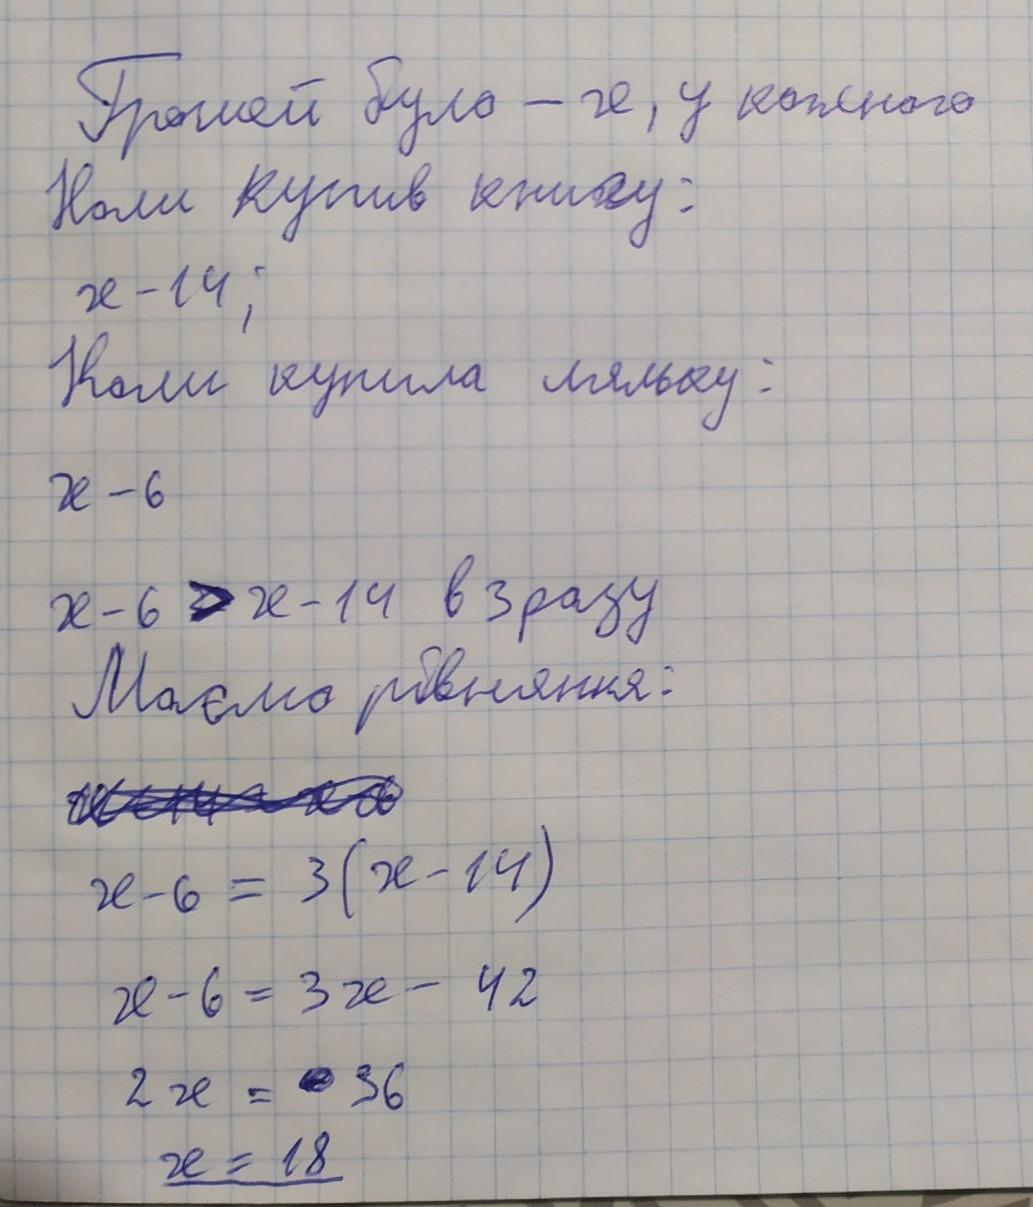 Грошей було – x, у кожного
Коли купив книжку:
x – 14;
Коли купила ляльку:
x – 6
x – 6 > x – 14 в 3 разу
Маємо рівняння:
x – 6 = 3(x – 14)
x – 6 = 3x – 42
2x = 36
x = 18